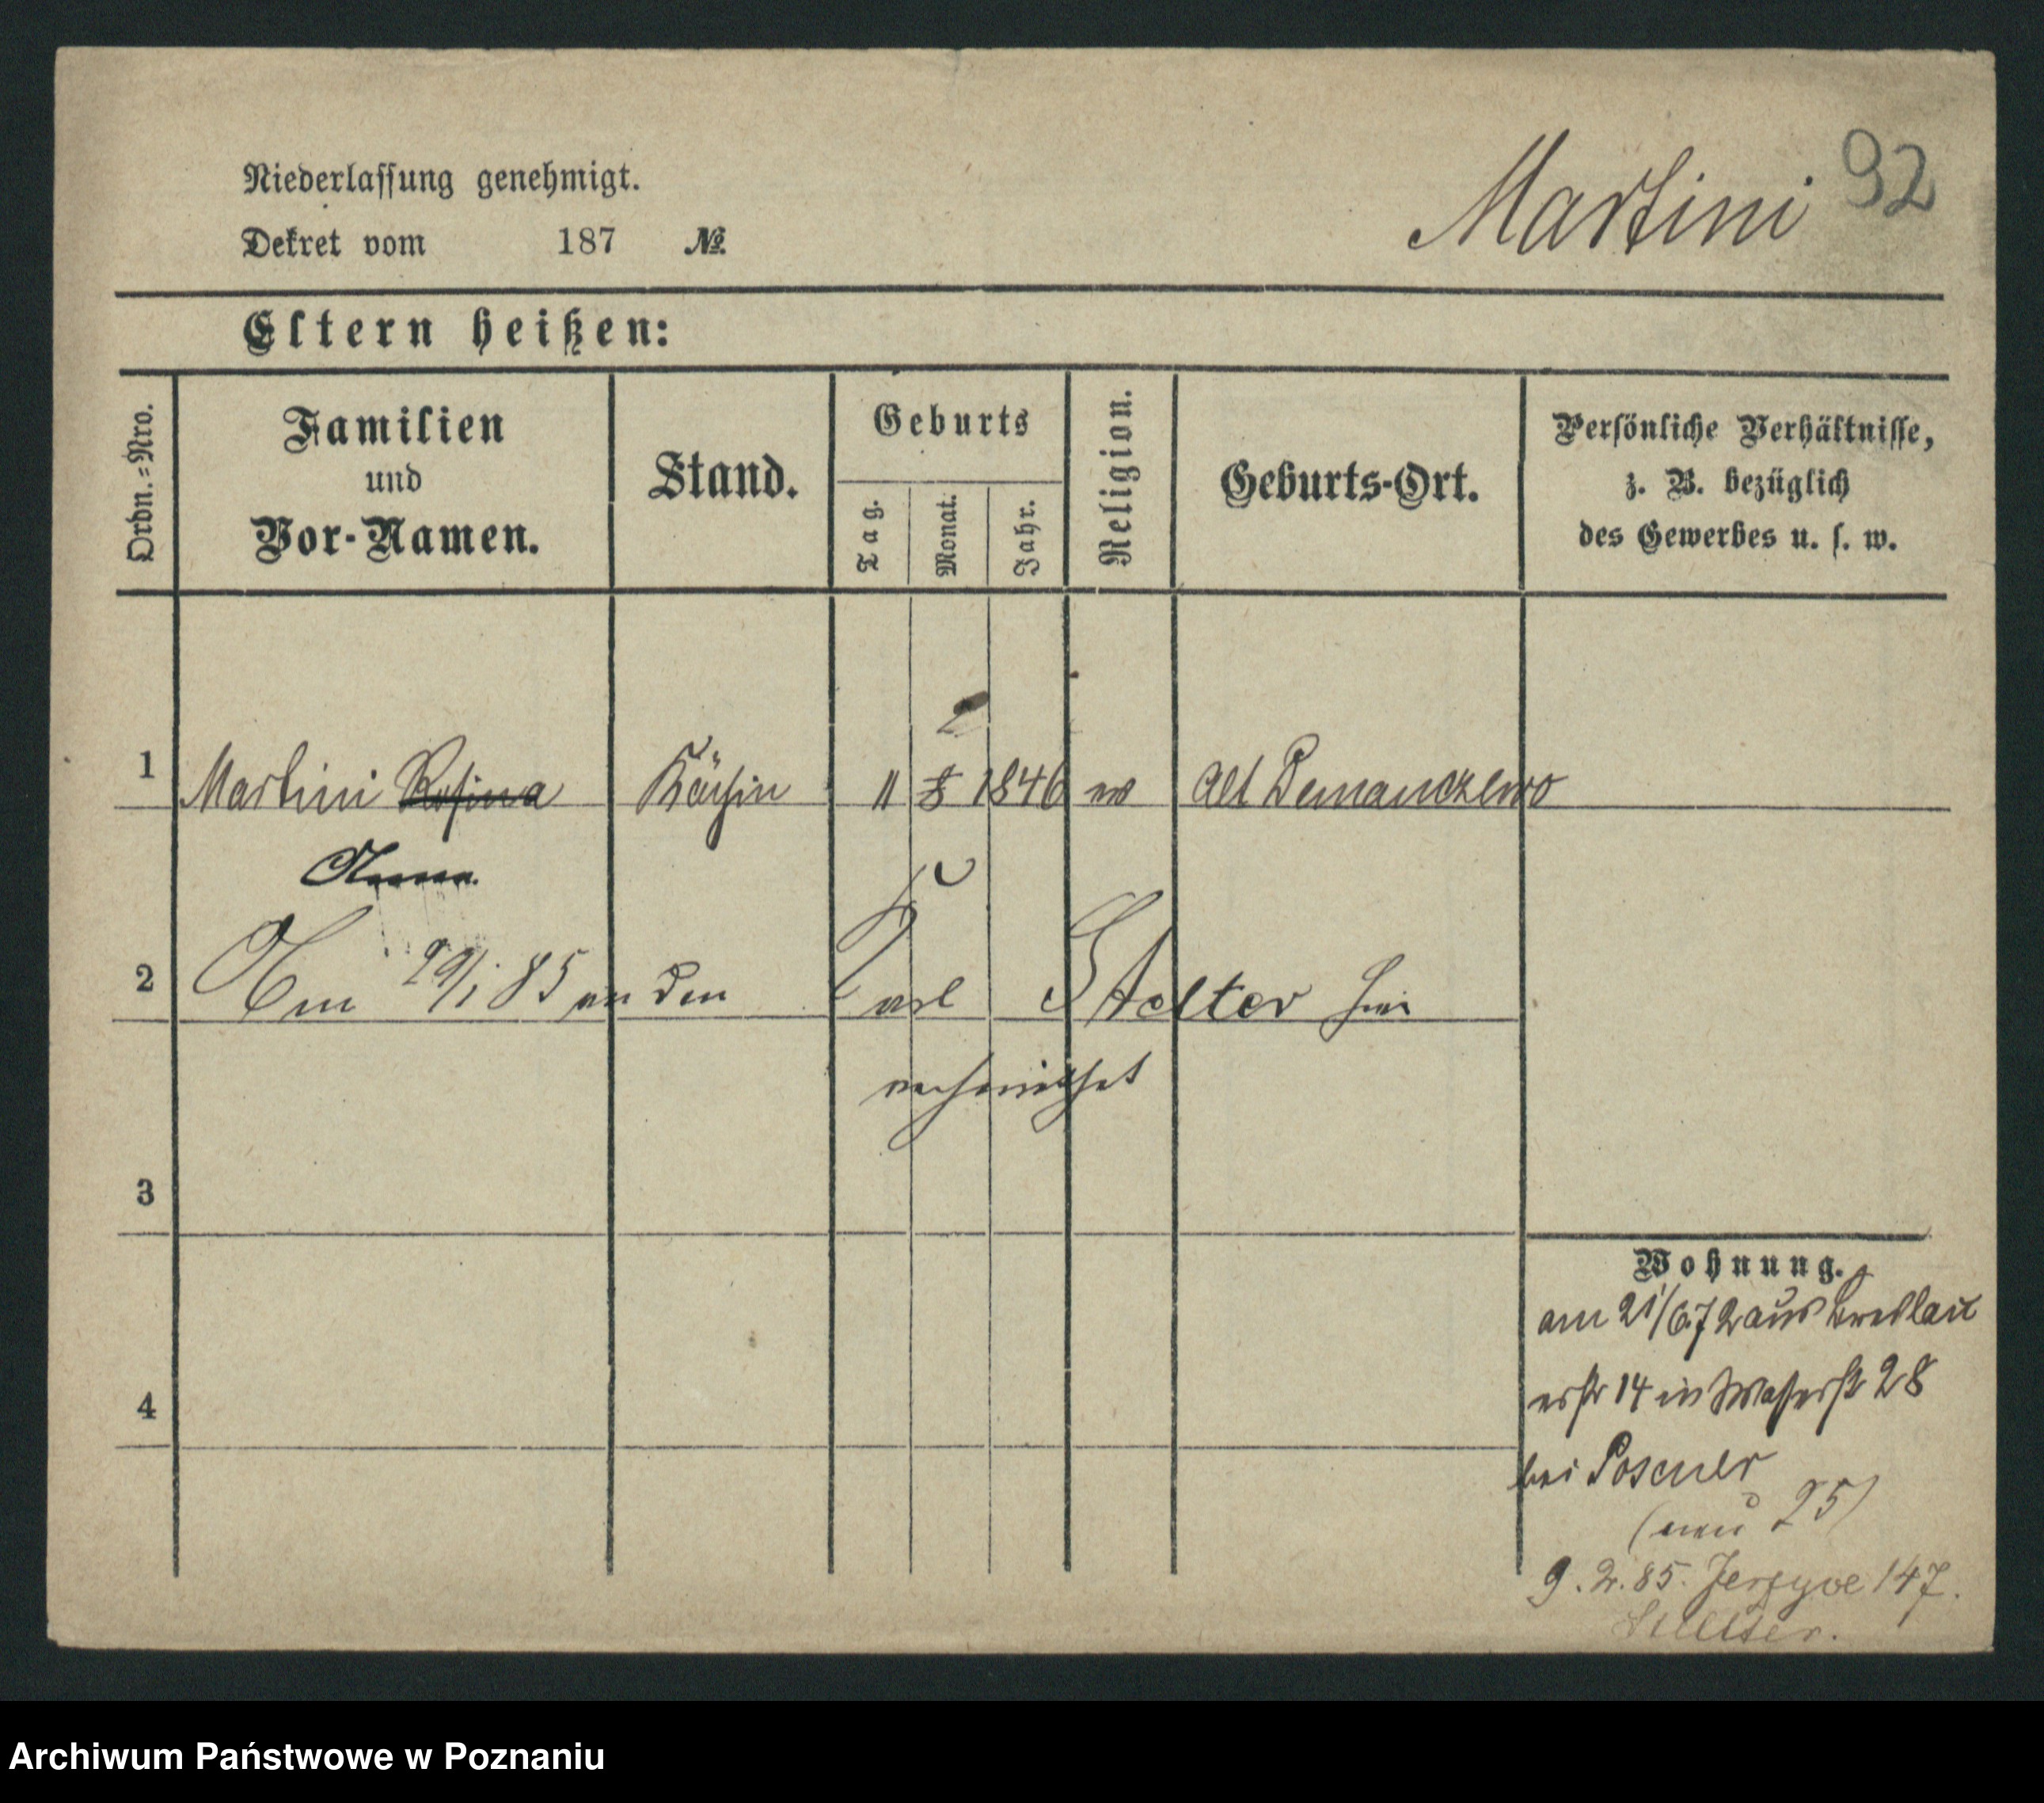 Martini 92
Niederlassung genehmigt.
Dekret vom 187 №
Eltern heißen:
Ordn.=Nro.
Familien
und
Vor-Namen.
Stand.
Geburts
Tag.
Monat.
Jahr.
Religion.
Geburts-Ort.
Persönliche Verhältnisse,
z. B. bezüglich
des Gewerbes u. s. w.
2
1 Martini Rosina Köchin 11 8 1846 ev Alt Demanczewo
Anna
2 Am 29/1 85 an den Karl Stelter hier
verheirathet
3
4
Wohnung.
am 21/6.72 aus Breslau
14 in Wasserstr 28
bei Posener
(neu 25)
9.2.85. Jerzyce 147.
Stelter.